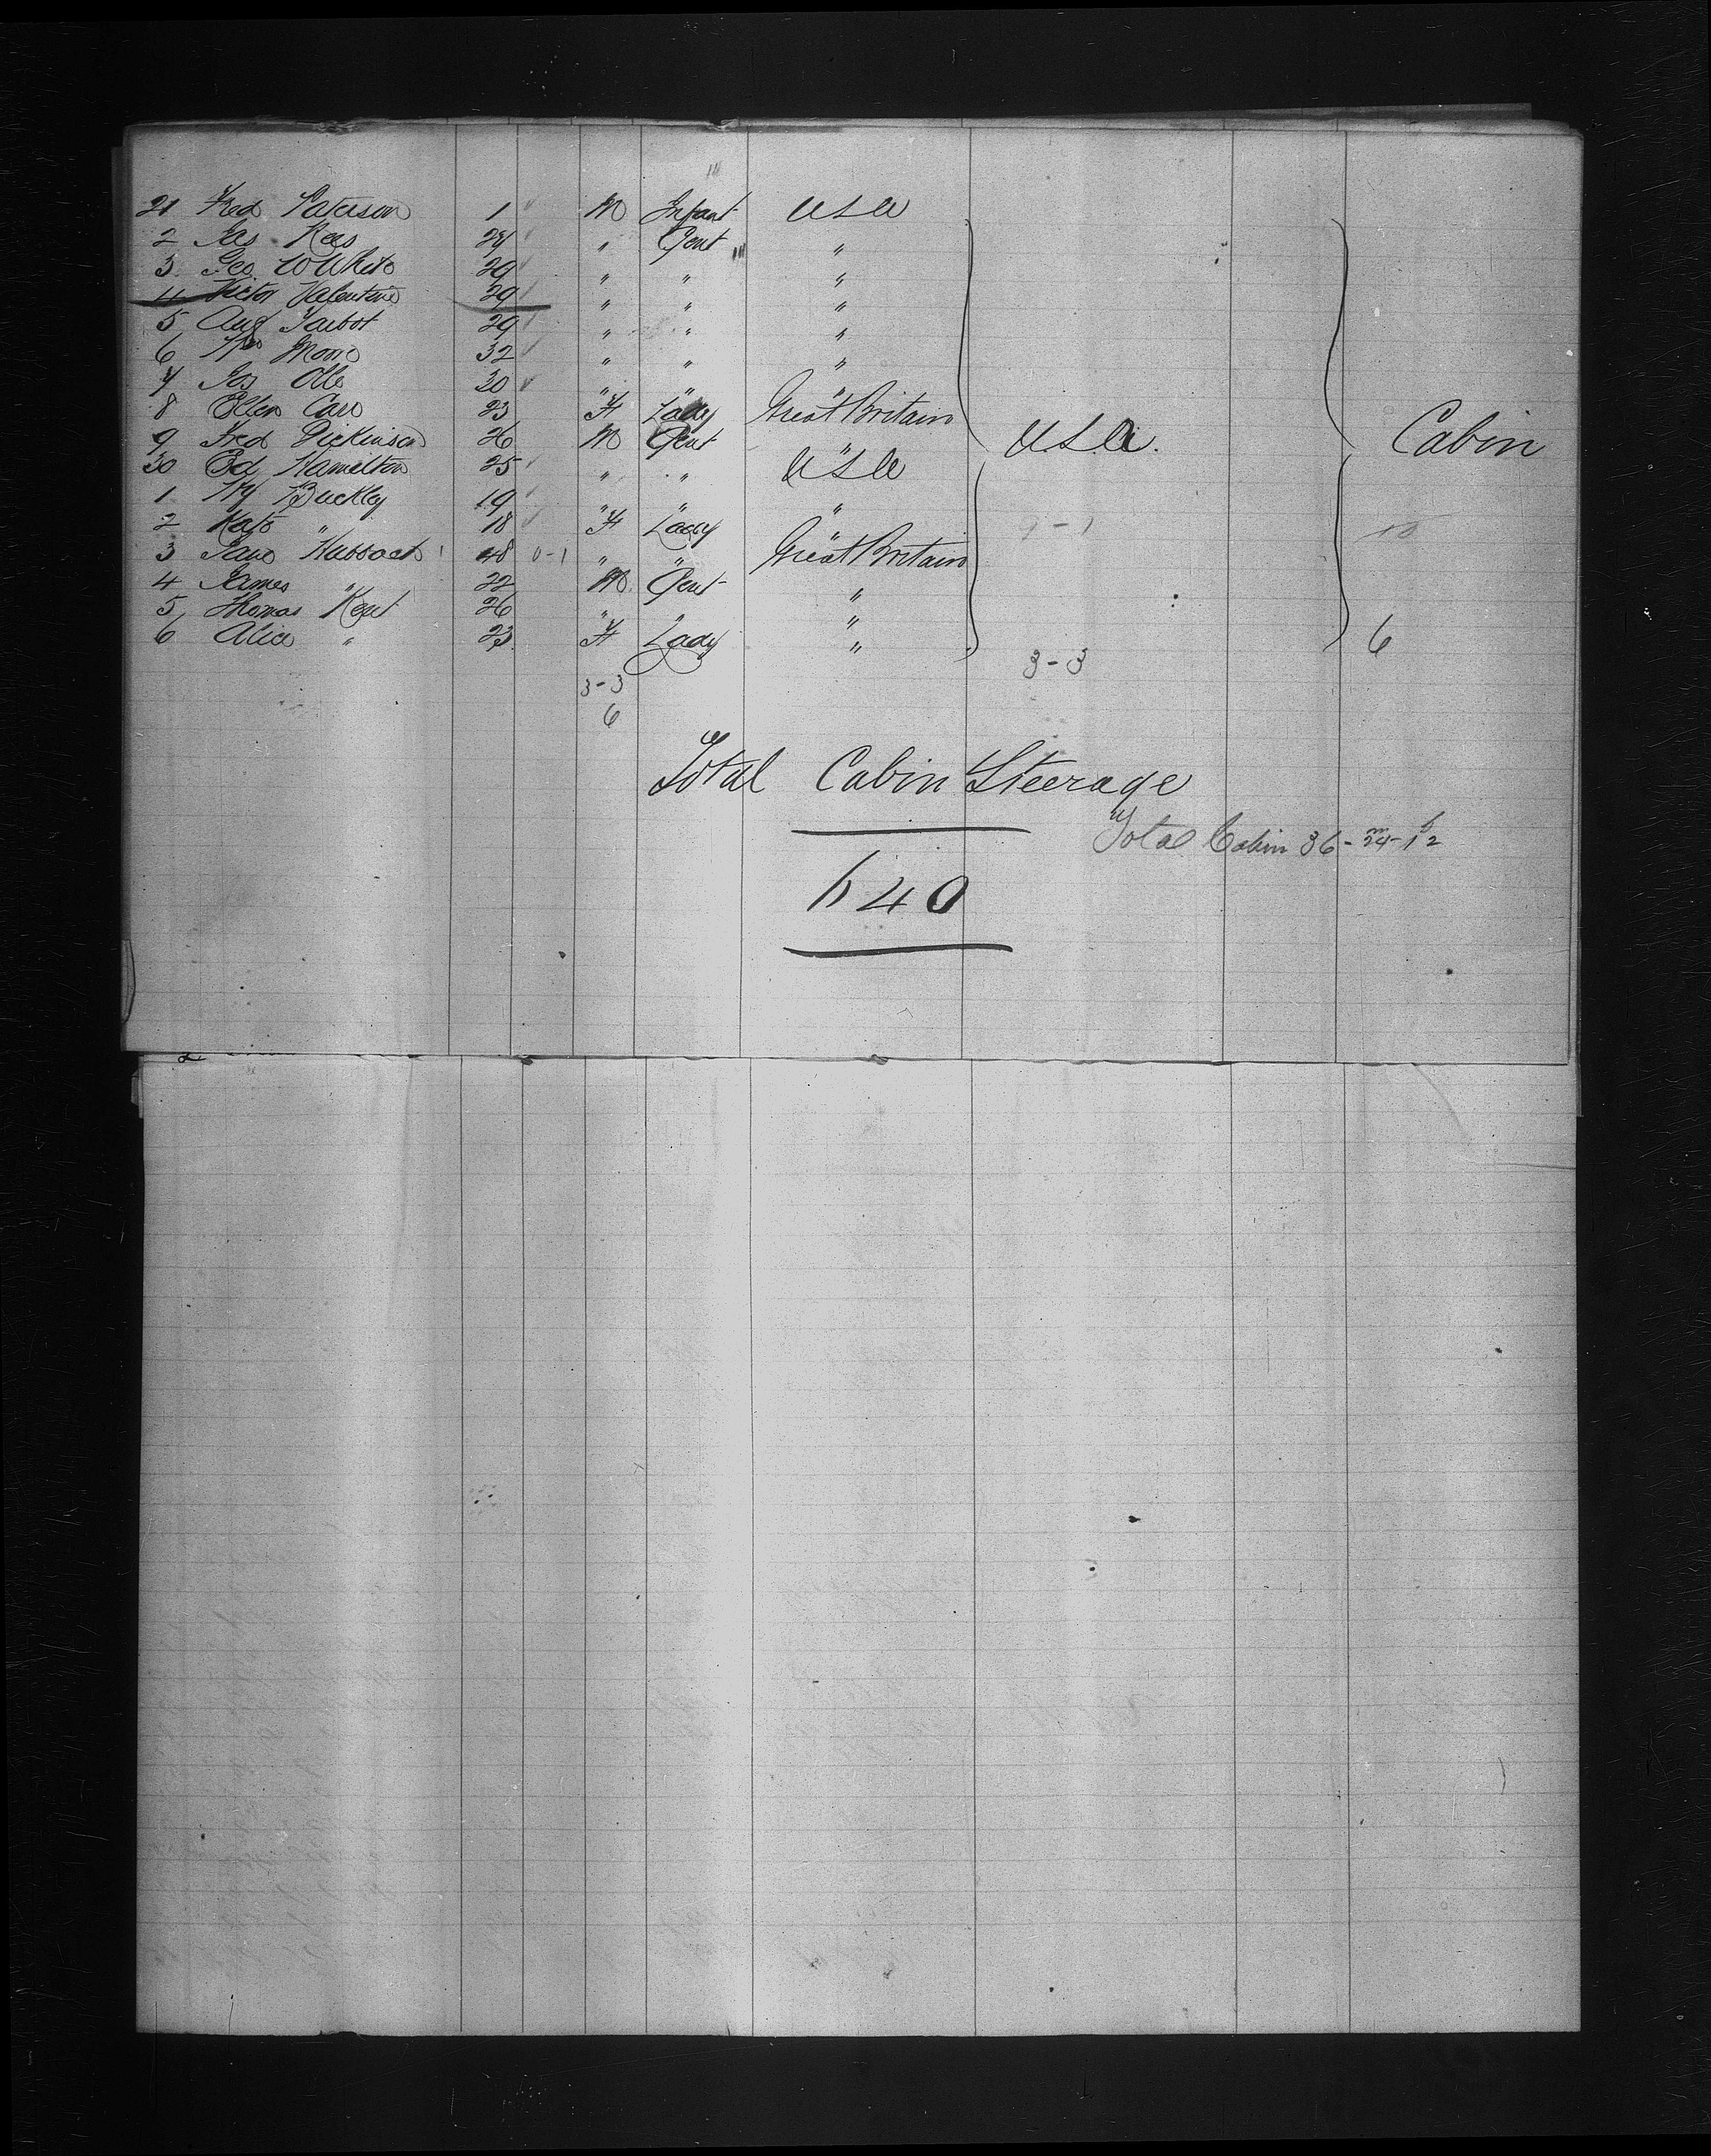 21 Fred Paterson 1 M Infant USA
2 Jas Rees 24 " Gent "
3 Geo W White 29 " " "
4 Victor Valentine 29 " " "
5 Aug Tarbot 29 " " "
6 Moore 32 " " "
7 Jos Ole 30 " " "
8 Ellen Carr 23 F Lady Great Britain
9 Fred Dickinson 26 M Gent " USA. Cabin
30 Ed Hamilton 25 " " USA
1 Hy Buckley 19 " " "
2 Kate " 18 F Lady " 10
3 Jane 48 0-1 " " Great Britain
4 James " 22 M Gent "
5 Thomas Kent 26 " " "
6 Alice " 23 F Lady " 6
3-3
3-3
6
Total Cabin Steerage
Total Cabin 36 - m 24 - f 12
640